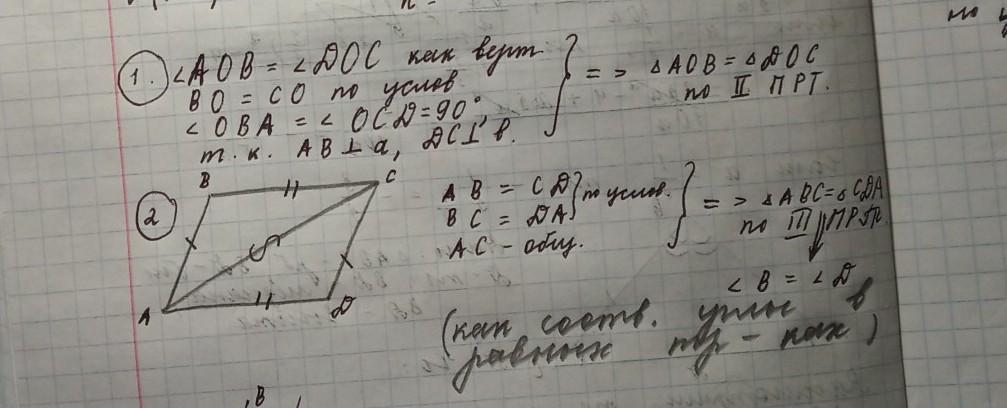 1. ∠AOB = ∠DOC как верт.
BO = CO по услов.
∠OBA = ∠OCD = 90°,
т.к. AB⊥a, DC⊥b.
=> △AOB = △DOC
по II ПРТ.
2
B
C
A
D
AB = CD
BC = DA
по услов.
AC - общ.
=> △ABC = △CDA
по III ПРТР.
∠B = ∠D
(как соотв. углы в
равных тр-ках)
B
но